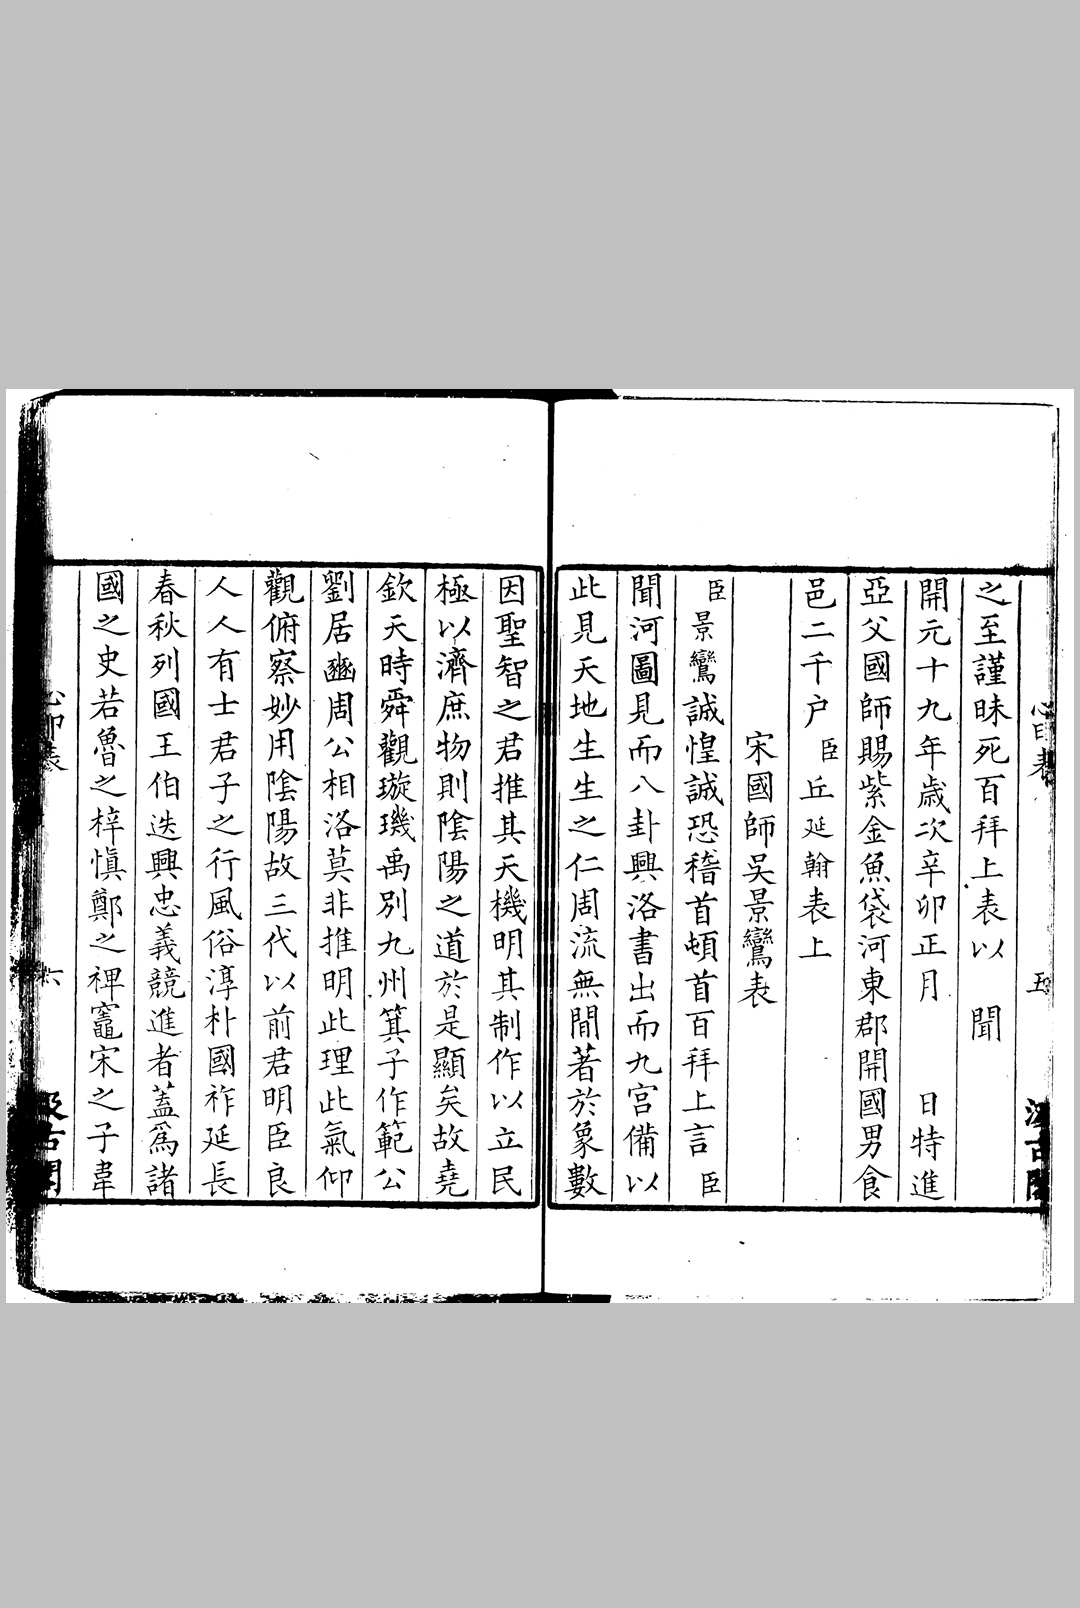 心印表 五
之至謹昧死百拜上表以 聞
開元十九年歲次辛卯正月 日特進
亞父國師賜紫金魚袋河東郡開國男食
邑二千户臣丘延翰表上
宋國師吳景鸞表
臣景鸞誠惶誠恐稽首頓首百拜上言臣
聞河圖見而八卦興洛書出而九宫備以
此見天地生生之仁周流無間著於象數
因聖智之君推其天機明其制作以立民
極以濟庶物則陰陽之道於是顯矣故堯
欽天時舜觀璇璣禹別九州箕子作範公
劉居豳周公相洛莫非推明此理此氣仰
觀俯察妙用陰陽故三代以前君明臣良
人人有士君子之行風俗淳朴國祚延長
春秋列國王伯迭興忠義競進者蓋爲諸
國之史若魯之梓愼鄭之裨竈宋之子韋
心印表 六 汲古閣